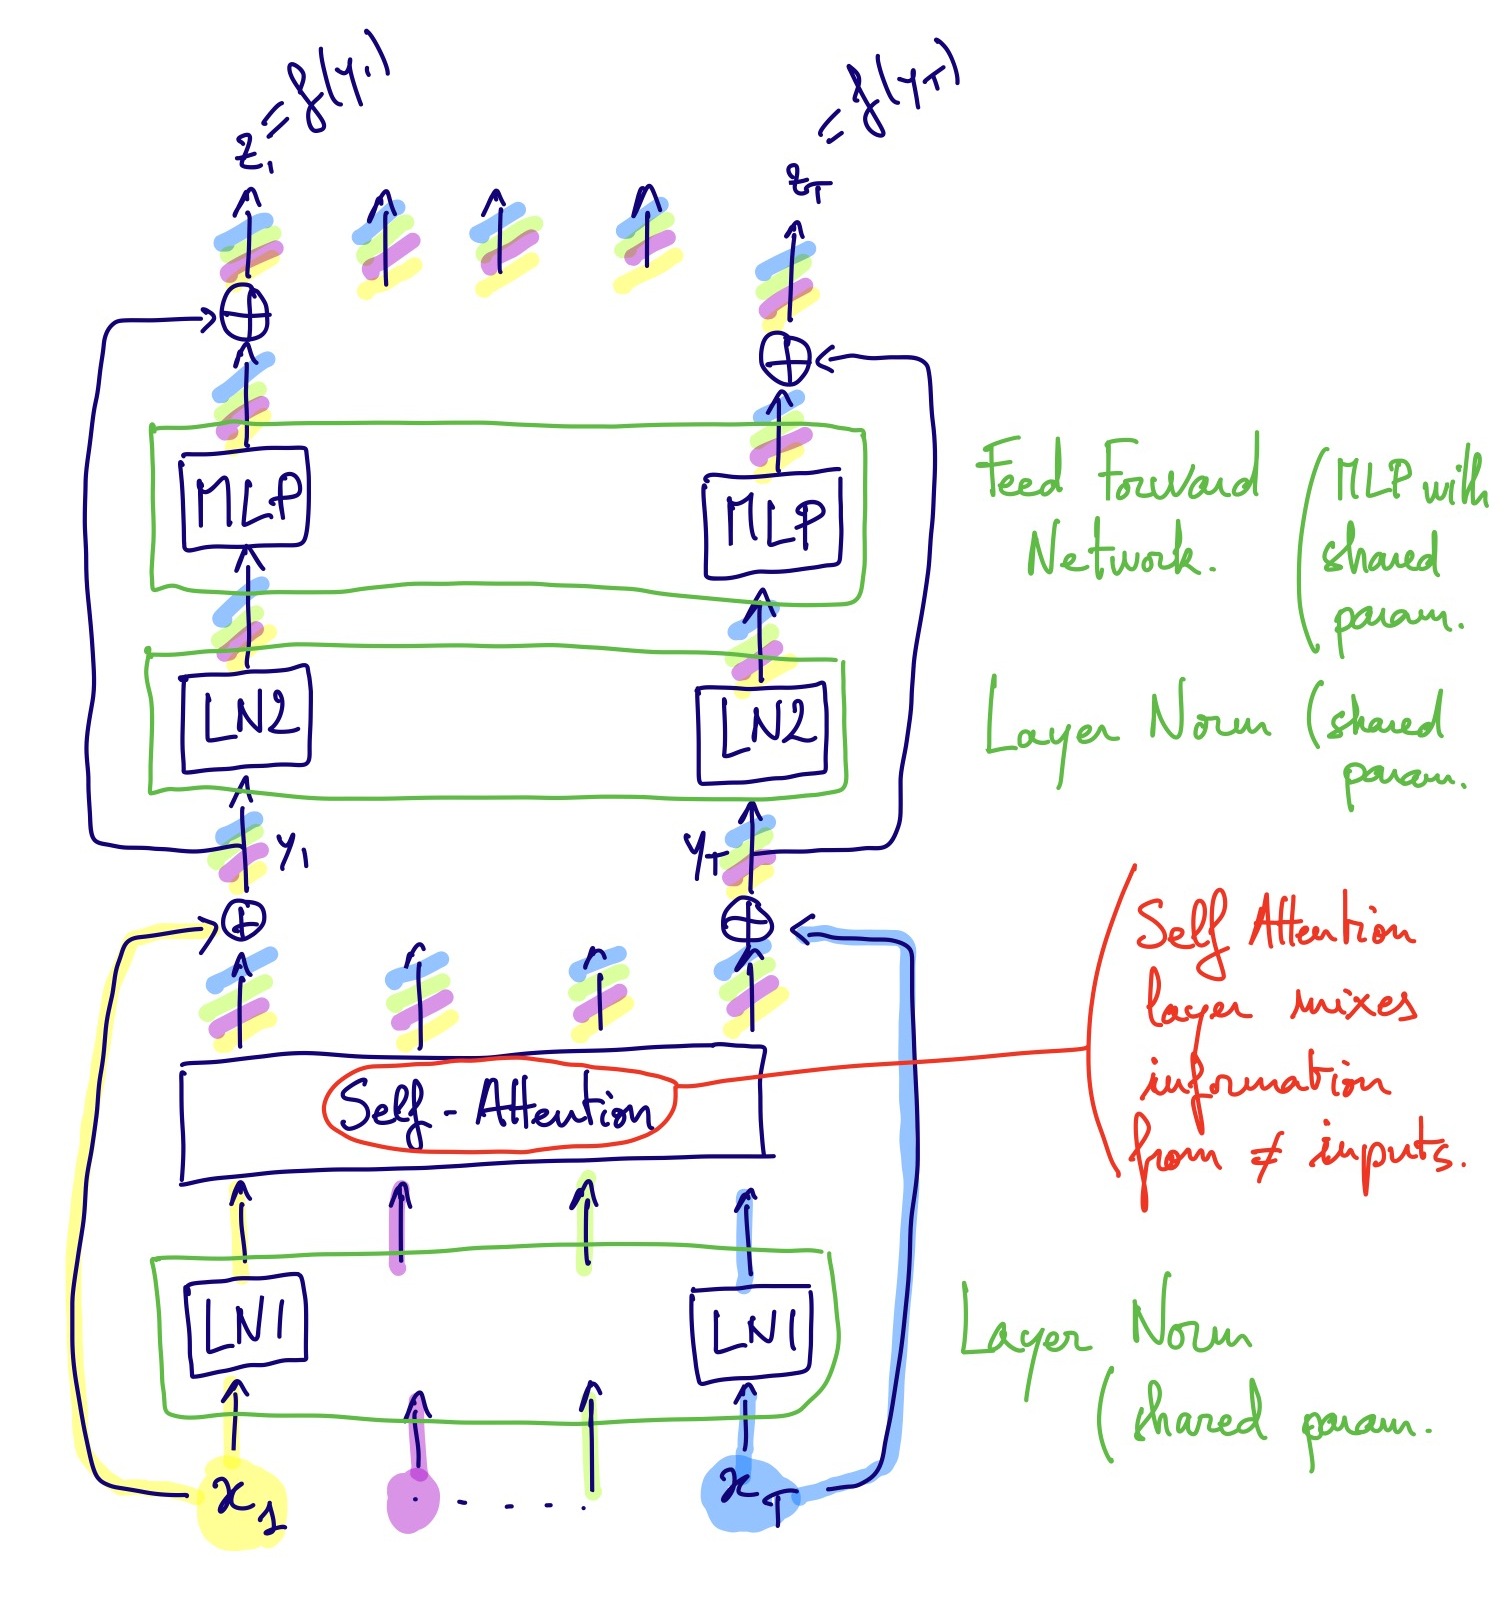 z₁ = f(y₁)
z_T = f(y_T)
MLP
MLP
Feed Forward
Network.
(MLP with
shared
param.
LN2
LN2
Layer Norm (shared
param.
y₁
y_T
Self-Attention
Self Attention
layer mixes
information
from ≠ inputs.
LN1
LN1
Layer Norm
(shared param.
x₁
. - - - .
x_T